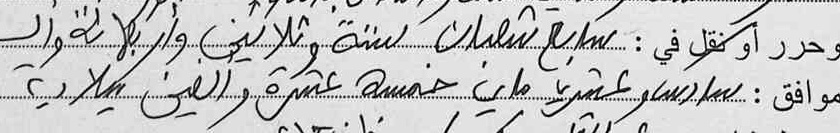 وحرر أو نقل في : سابع شعبان سنة وثلاثين وأربعمائة وألف
موافق : سادس وعشرين ماي خمسة عشرة وألفين ميلادية